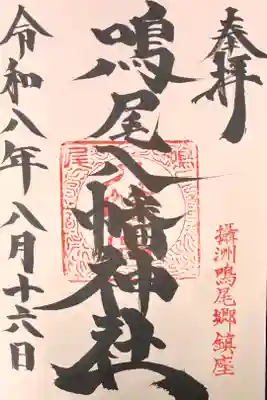 奉拝
攝洲鳴尾郷鎮座
鳴尾八幡神社
令和八年八月十六日